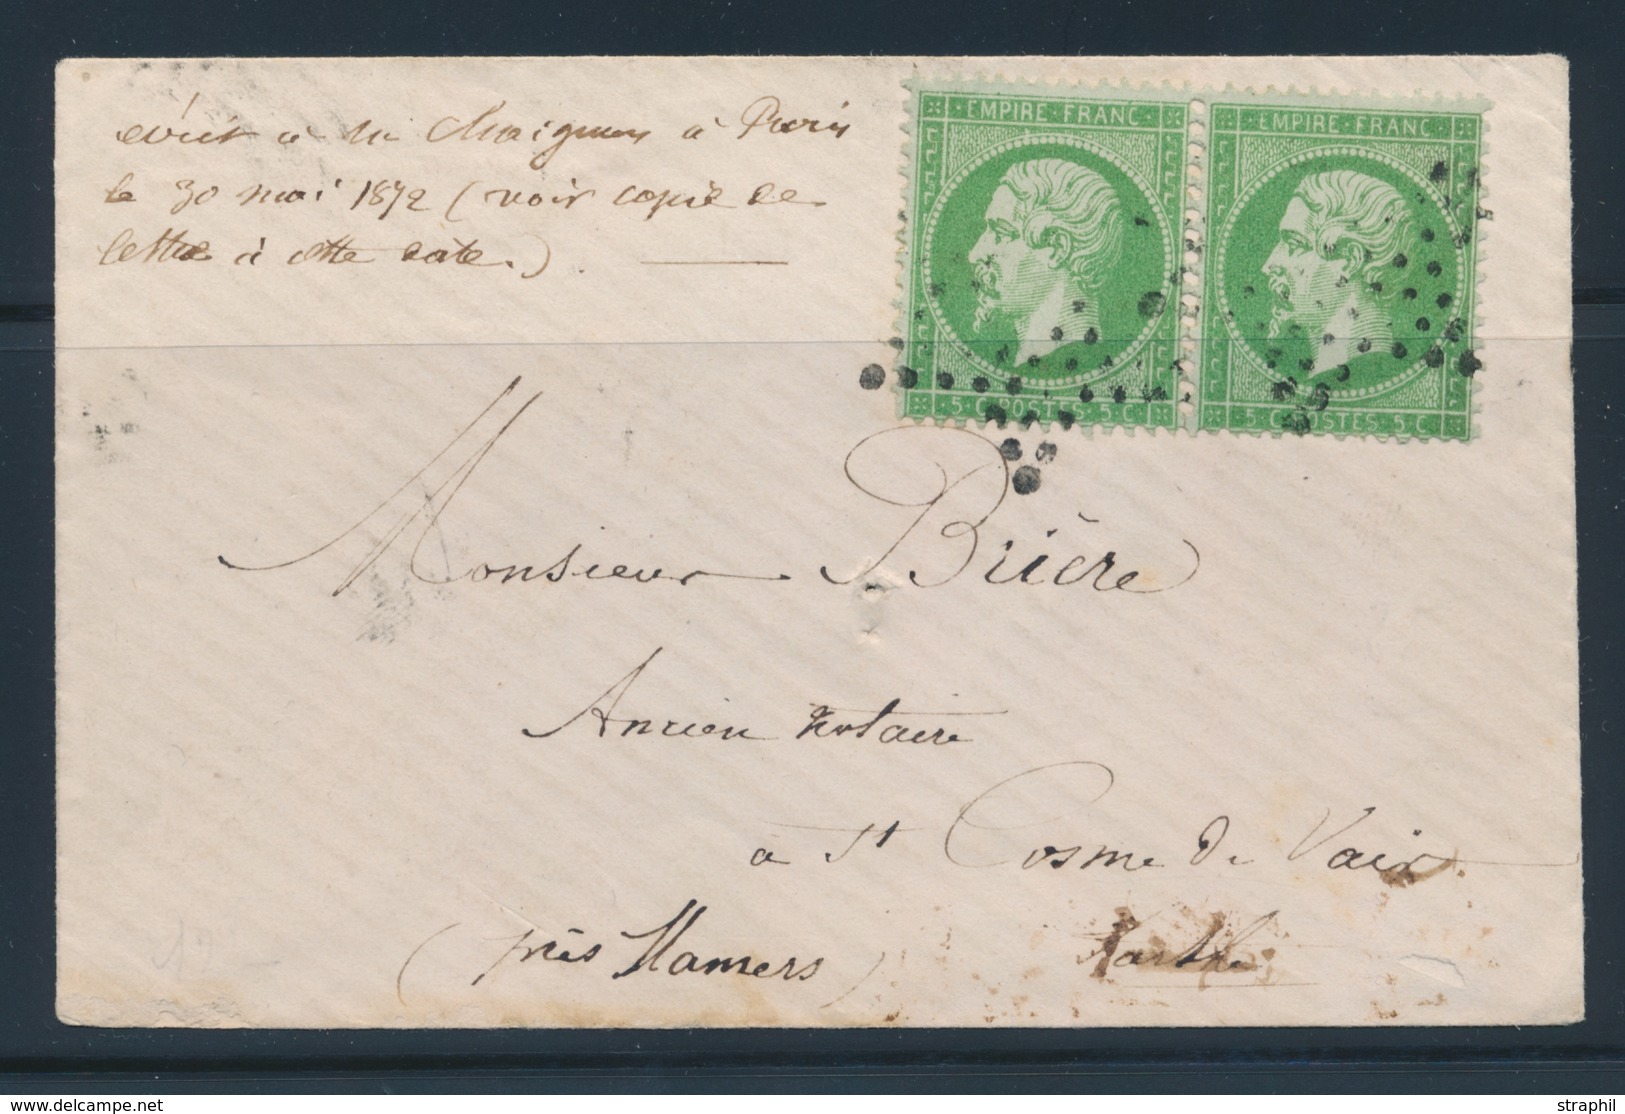 écrit à M Chaignon à Paris
le 30 mai 1872 (voir copie de
lettre à cette date.)
EMPIRE · FRANC
5 · C · POSTES · 5 · C
EMPIRE · FRANC
5 · C · POSTES · 5 · C
Monsieur Brière
Ancien Notaire
à St Cosme de Vair
(près Mamers) Sarthe
www.delcampe.net
straphil